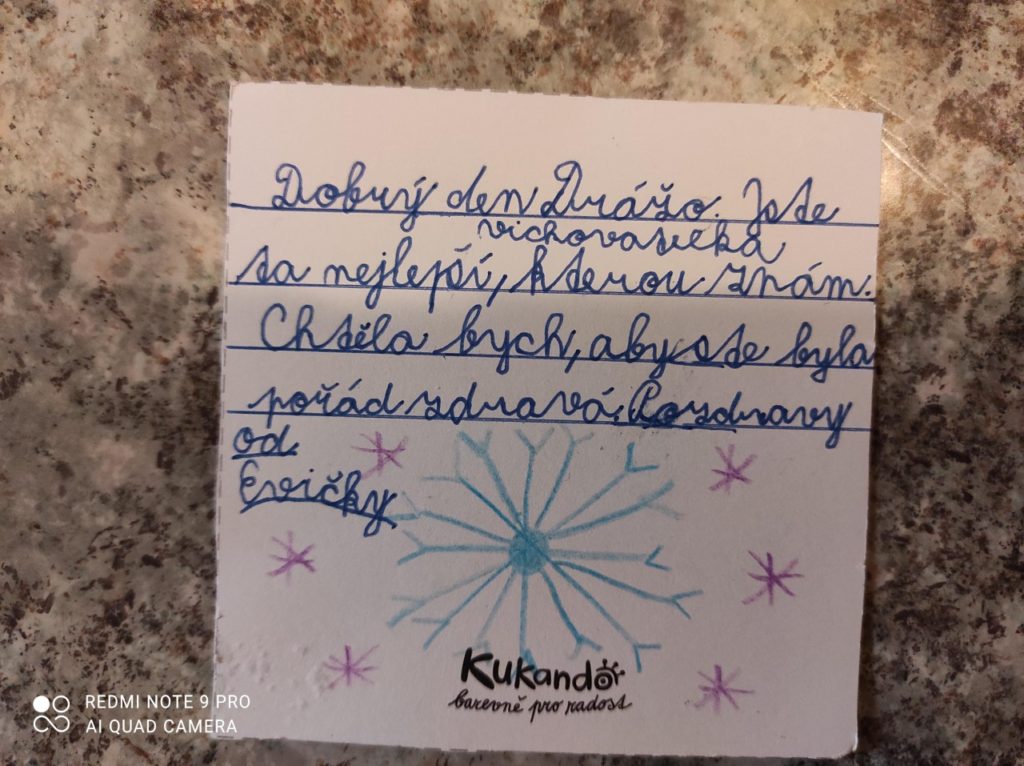 Dobrý den Drážo. Jste
vichovatelka
ta nejlepší, kterou znám.
Chtěla bych, aby ste byla
pořád zdravá. Pozdravy
od
Evičky
Kukandó
barevně pro radost
REDMI NOTE 9 PRO
AI QUAD CAMERA